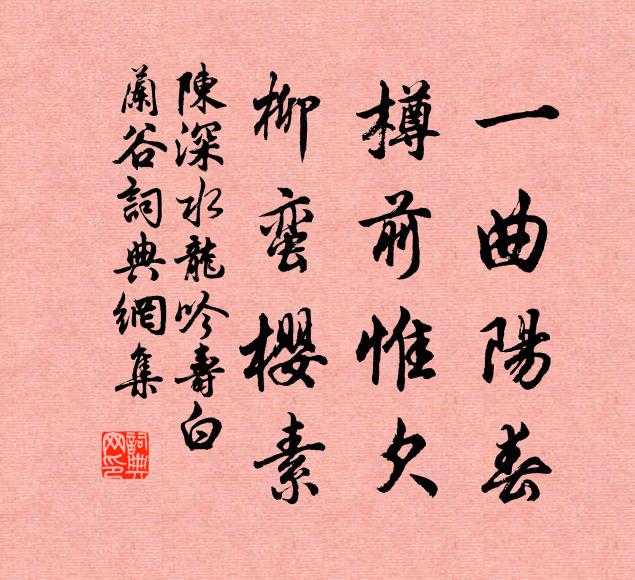 一曲陽春
樽前惟欠
柳蛮櫻素
陳深水龍吟壽白
蘭谷詞典網集
詞典
网印